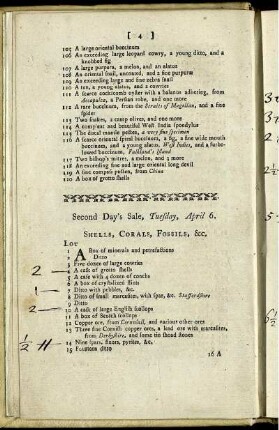 [ 4 ]
105 A large oriental buccinum
106 An exceeding large leopard cowry, a young ditto, and a
knobbed fig
107 A large purpura, a melon, and an alatus
108 An oriental snail, uncoated, and a fine purpura
109 An exceeding large and fine zebra snail
110 A ton, a young alatus, and 2 cowries
111 A scarce cockscomb oyster with a balanus adhering, from
Acapulca, a Persian robe, and one more
112 A rare buccinum, from the Streits of Magellan, and a fine
spider
113 Two snakes, 2 camp olives, and one more
114 A compleat and beautiful West India spondylus
115 The ducal mantle pecten, a very fine specimen
116 A scarce oriental spiral buccinum, a fig, a fine wide mouth
buccinum, and a young alatus, West Indies, and a furbe-
lowed buccinum, Falkland's Island
117 Two bishop's mitres, 2 melon, and 5 more
118 An exceeding fine and large oriental long devil
119 A fine compass pecten, from China
120 A box of grotto shells
Second Day's Sale, Tuesday, April 6.
SHELLS, CORALS, FOSSILS, &c.
LOT
1 A Box of minerals and petrifactions
2 Ditto
3 Five dozen of large cowries
2 4 A cask of grotto shells
5 A cask with 4 dozen of conchs
6 A box of crystalized flints
1 7 Ditto with pebbles, &c.
8 Ditto of small marcasites, with spar, &c. Staffordshire
9 Ditto
2 10 A cask of large English scallops
11 A box of Scotch scallops
12 Copper ore, from Cornwall, and various other ores
13 Three fine Cornish copper ores, a lead ore with marcasites,
from Derbyshire, and some tin shoad stones
14 Nine spars, fluors, pyrites, &c.
15 Fourteen ditto
16 A